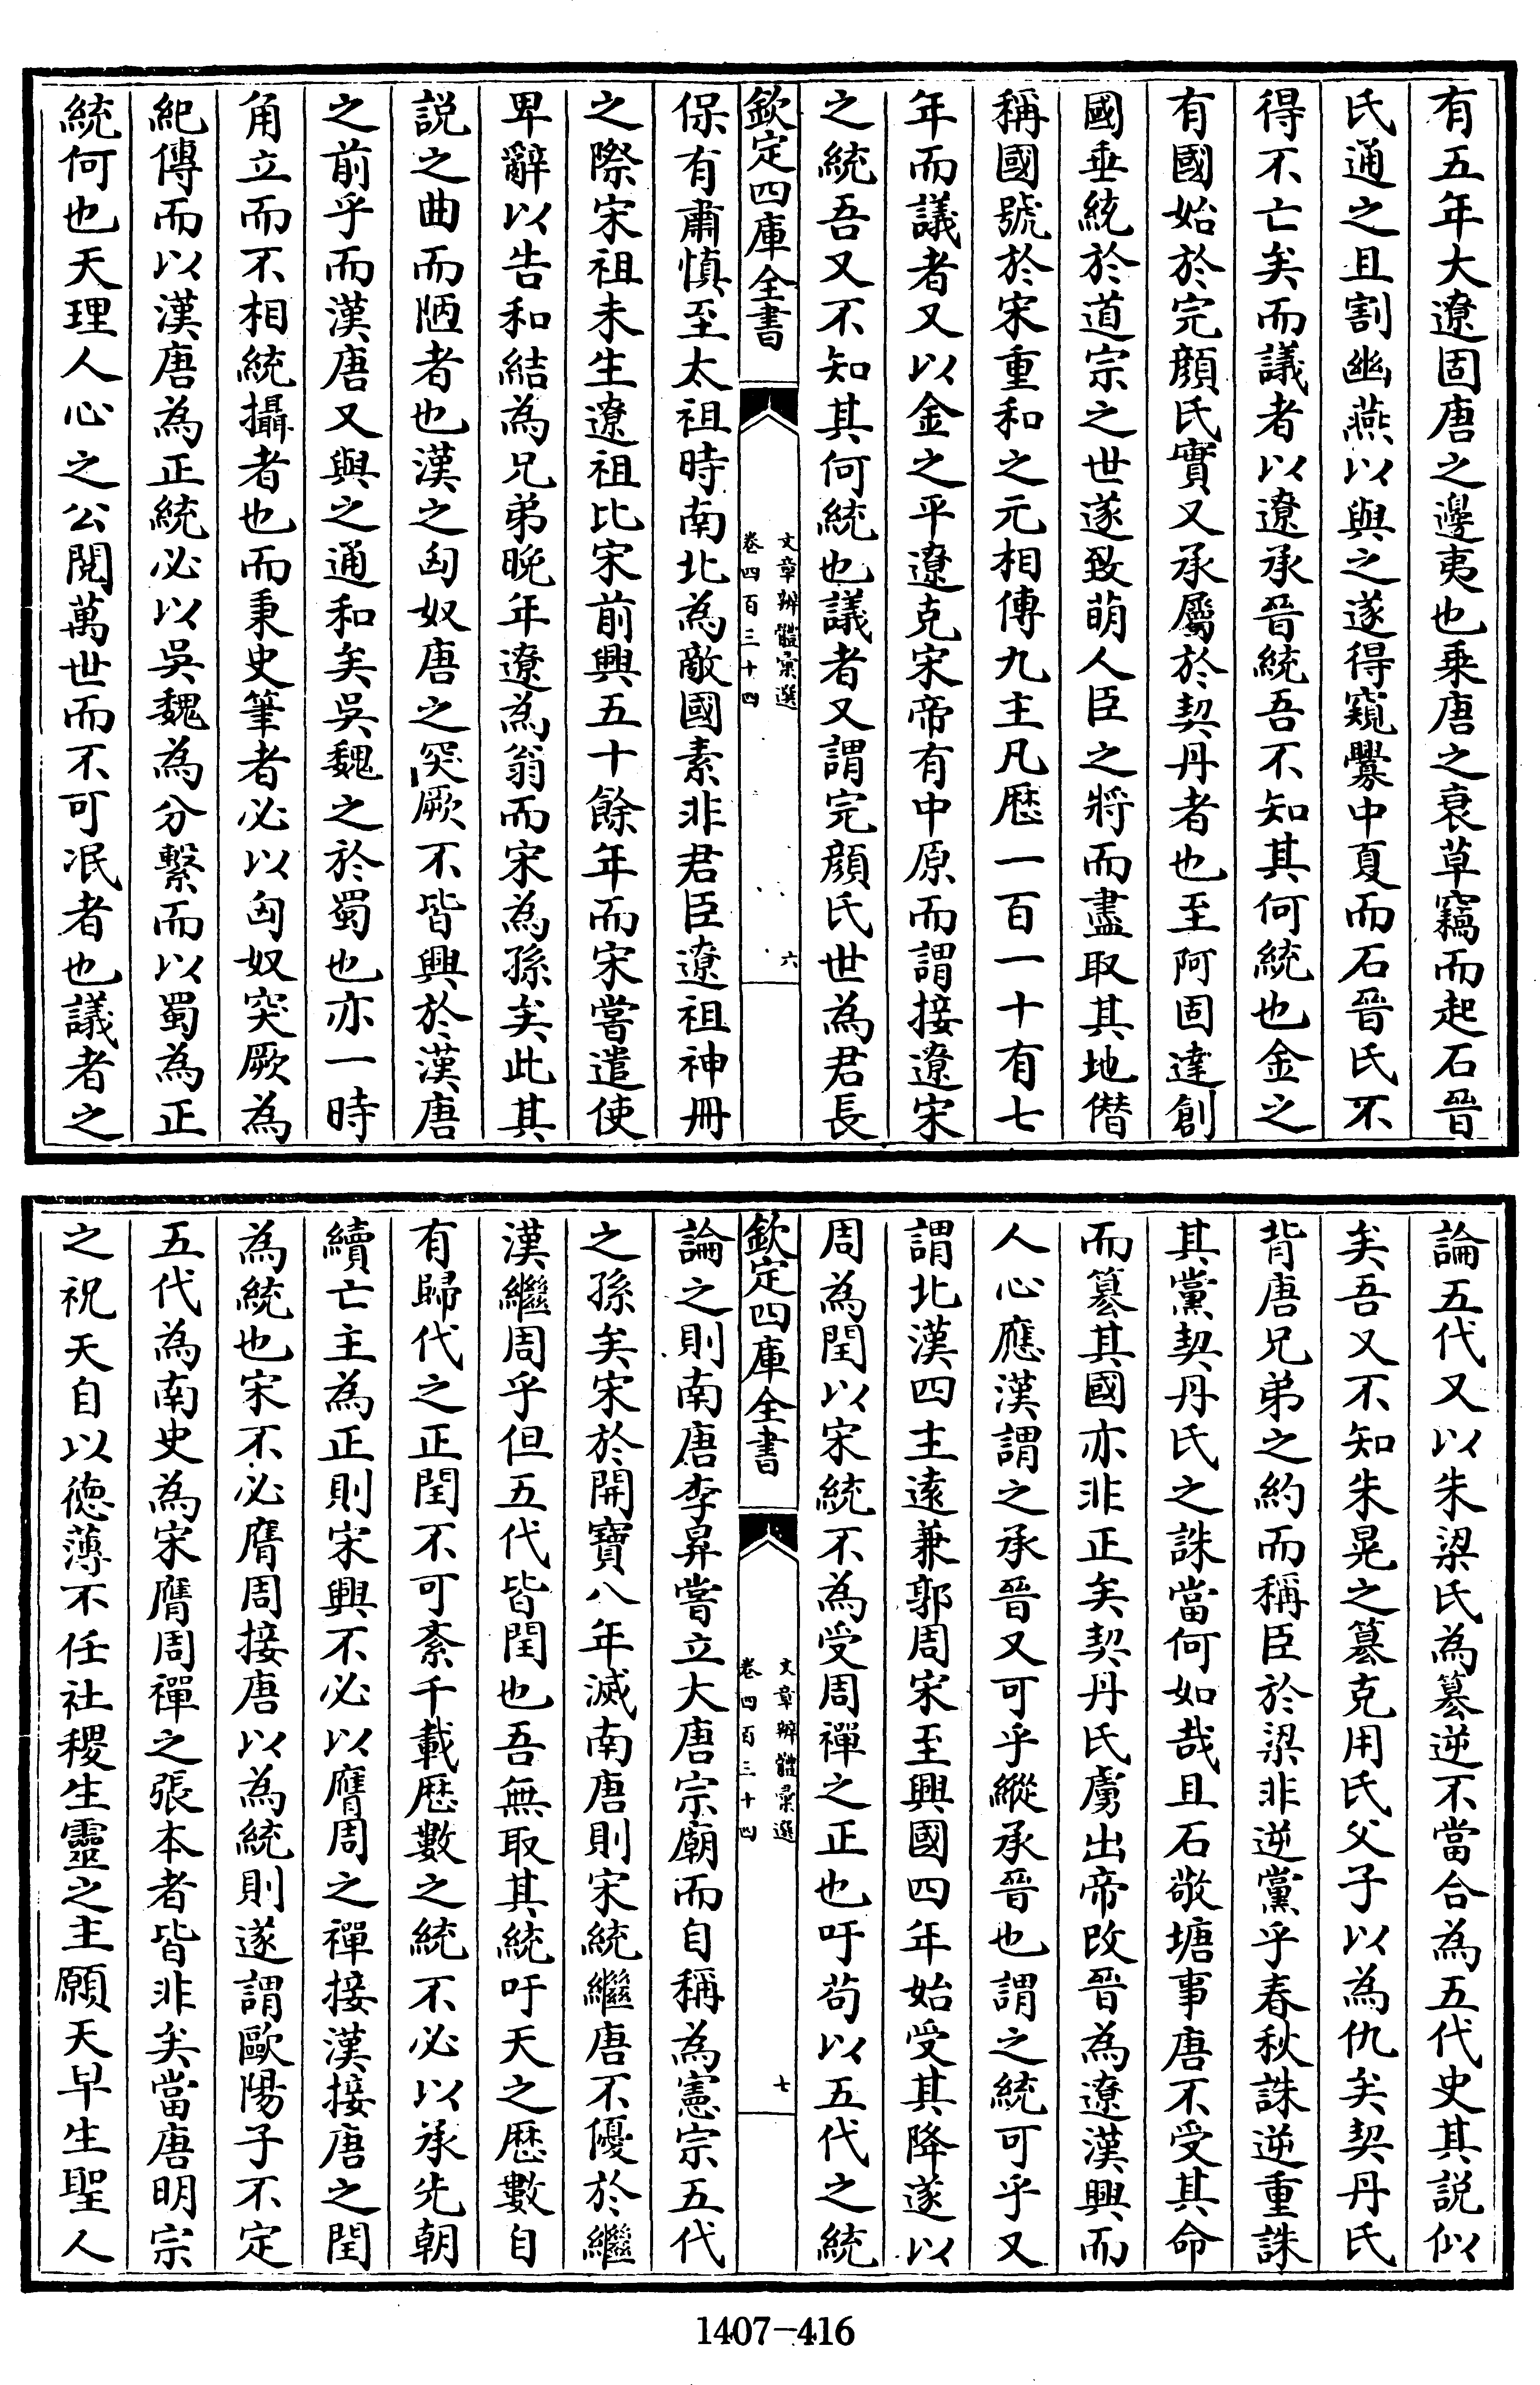 有五年大遼固唐之邊夷也乘唐之衰草竊而起石晉
氏通之且割幽燕以與之遂得窺釁中夏而石晉氏不
得不亡矣而議者以遼承晉統吾不知其何統也金之
有國始於完顔氏實又承屬於契丹者也至阿固達創
國垂統於道宗之世遂致萌人臣之將而盡取其地僣
稱國號於宋重和之元相傳九主凡歴一百一十有七
年而議者又以金之平遼克宋帝有中原而謂接遼宋
之統吾又不知其何統也議者又謂完顔氏世為君長
欽定四庫全書
文章辨體彙選
卷四百三十四
六
保有肅慎至太祖時南北為敵國素非君臣遼祖神冊
之際宋祖未生遼祖比宋前興五十餘年而宋嘗遣使
卑辭以告和結為兄弟晚年遼為翁而宋為孫矣此其
説之曲而陋者也漢之匈奴唐之突厥不皆興於漢唐
之前乎而漢唐又與之通和矣吳魏之於蜀也亦一時
角立而不相統攝者也而秉史筆者必以匈奴突厥為
紀傳而以漢唐為正統必以吳魏為分繫而以蜀為正
統何也天理人心之公閱萬世而不可泯者也議者之
論五代又以朱梁氏為簒逆不當合為五代史其説似
矣吾又不知朱晃之簒克用氏父子以為仇矣契丹氏
背唐兄弟之約而稱臣於梁非逆黨乎春秋誅逆重誅
其黨契丹氏之誅當何如哉且石敬塘事唐不受其命
而簒其國亦非正矣契丹氏虜出帝改晉為遼漢興而
人心應漢謂之承晉又可乎縱承晉也謂之統可乎又
謂北漢四主逺兼郭周宋至興國四年始受其降遂以
周為閏以宋統不為受周禪之正也吁茍以五代之統
欽定四庫全書
文章辨體彙選
卷四百三十四
七
論之則南唐李昪嘗立大唐宗廟而自稱為憲宗五代
之孫矣宋於開寶八年滅南唐則宋統繼唐不優於繼
漢繼周乎但五代皆閏也吾無取其統吁天之歴數自
有歸代之正閏不可紊千載歴數之統不必以承先朝
續亡主為正則宋興不必以膺周之禪接漢接唐之閏
為統也宋不必膺周接唐以為統則遂謂歐陽子不定
五代為南史為宋膺周禪之張本者皆非矣當唐明宗
之祝天自以徳薄不任社稷生靈之主願天早生聖人
1407-416